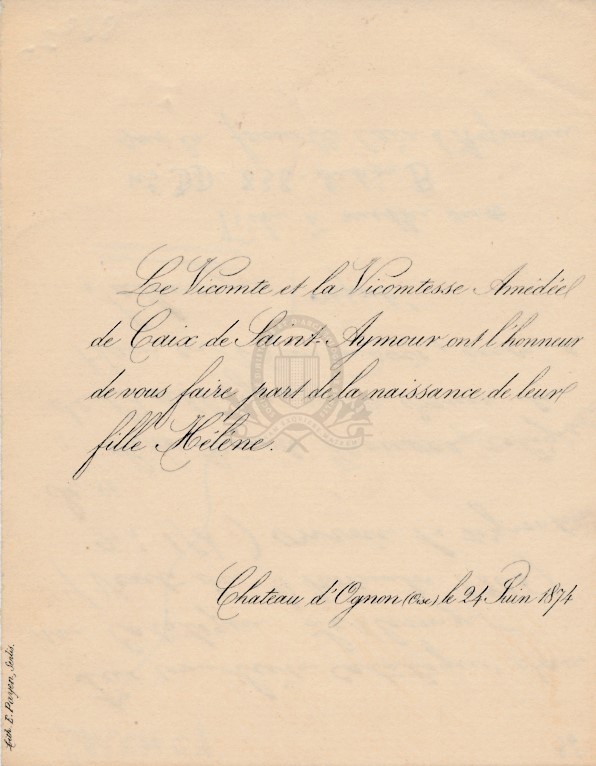 Le Vicomte et la Vicomtesse Amédée
de Caix de Saint-Aymour ont l'honneur
de vous faire part de la naissance de leur
fille Hélène.
Chateau d'Ognon (Oise) le 24 Juin 1874
Lith. E. Payen, Senlis.